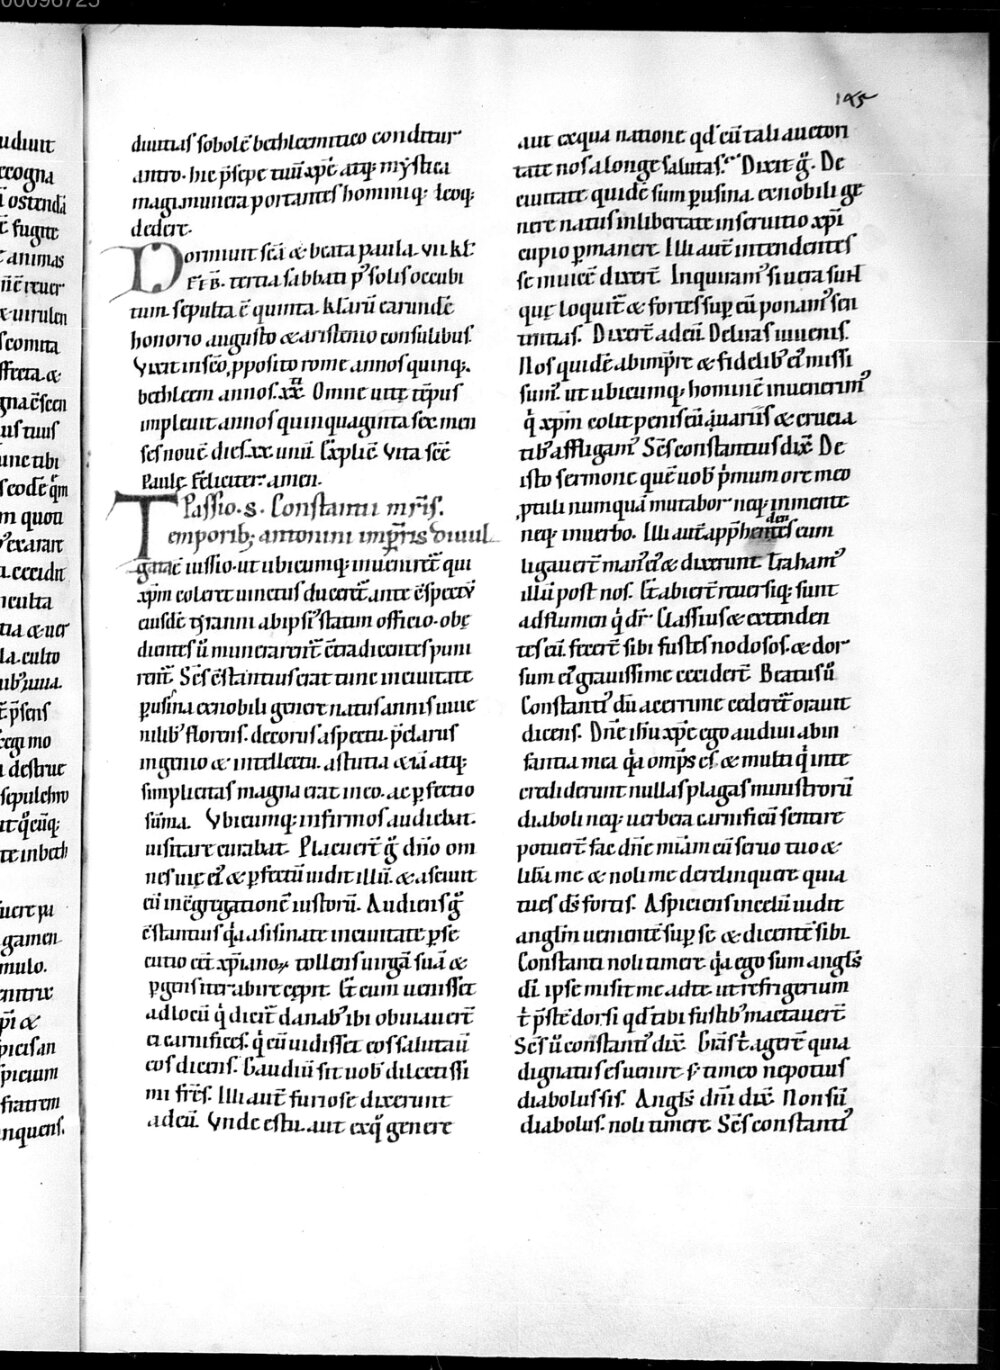 00098725
195
udiunt
cogna
ostendā
ē fugite
animas
scomita
uſ tuuſ
unc tibi
m quoti
eccidit
culta
la. culto
p̄senſ
destrue
sepulchro
te in beth
gamen
mulo.
piciſan
ſpicium
fratrem
nquenſ.
diuitiaſ ſobolē bethleemitico conditur
antro. hic p̄sepe tuū xp̄e atq; mẏstica
magi munera portanteſ homini q; deoq;
dedere.
Dormiuit sc̄a & beata paula. vii kł.
FEB. tertia sabbati p' soliſ occubi
tum. sepulta ē quinta. kłarū earundē
honorio augusto & aristenio consulibuſ.
Vixit in sc̄o ,pposito rome annoſ quinq;.
bethleem annoſ. xx. Omne uitę tēpuſ
impleuit annoſ quinquaginta sex men
seſ nouē dieſ. xx unū. Explic̄ Vita sc̄ę
Paulę. feliciter. amen.
Passio. S. Constantii mr̄iſ.
Temporib; antonini imp̄r̄iſ diuul
gatac̄ iussio. ut ubicumq; inuenirēt qui
xp̄m coleret uinctuſ ducerēt. ante ꝯspectū
eiusdē tẏranni ab ipsi' statim officio. obę
dienteſ ū munerarent̄. ꝯtradicenteſ puni
rent̄. Sc̄ſ ꝯstantiuſ erat tunc in ciuitate
p̱usina ex nobili genere natuſ anniſ iuue
nilib' florenſ. decoruſ aspectu. p̄claruſ
ingenio & intellectu. astutia & iā atq;
simplicitaſ magna erat in eo. ac p̱fectio
sūma. Vbicumq; infirmoſ audiebat.
uisitare curabat. Placuerē g° dn̄o om
neſ uię ei' & p̱fectū uidit illū. & asciuit
eū in ꝯgregationē iustorū. Audienſ g°
ꝯstantiuſ q̇a asisinate in ciuitate p̱se
cutio eēt xp̄ianoꝝ tollenſ uirgā suā &
p̱genſ iter abire cępit. Et cum uenisset
ad locū q̇ dicit̄ danab' ibi obuiauerē
ei carnificeſ. q̇ cū uidisset eoſ salutau̅
eoſ dicenſ. Gaudiū sit uob' dilectissi
mi fr̄eſ. Illi autē furiose dixerunt
ad eū. Vnde es tu. aut ex q̇ genere
aut ex qua natione qd' eū tali auctori
tate noſ a longe salutaſ? Dixit g°. De
ciuitate quidē sum p̱usina. ex nobili ge
nere natuſ in libertate in seruitio xp̄i
cupio p̱manere. Illi autē intendenteſ
se inuicē dixerē. Inquiram' si uera sunt
quę loquit̄ & forteſ sup̱ eū ponam' sen
tentiaſ. Dixerē ad eū. Deliraſ iuueniſ.
Noſ quidē ab imp̄re & fidelib' ei' missi
sum'. ut ubicumq; hominē inuenerim'
q̇ xp̄m colit. peniſ eū uariiſ & crucia
tib' affligam'. Sc̄ſ constantiuſ dix̄. De
isto sermone quē uob' p̄mum ore meo
,ptuli numquā mutabor neq; in mente
neq; in uerbo. Illi autē app̄hendenteſ eum
ligauerē man' ei' & dixerunt. Traham'
illū post noſ. Et abierē reuersiq; sunt
ad flumen q̇ dr̄ Classiuſ & extenden
teſ eū. fecerē sibi fusteſ nodosoſ. & dor
sum ei' grauissime ceciderē. Beatuſ ū
Constanti' dū acerrime cederet̄ orauit
dicenſ. Dn̄e ih̄u xp̄e ego audiui ab in
fantia mea q̇a om̄pſ eſ. & multi q̇ in te
crediderunt nullaſ plagaſ ministrorū
diaboli neq; uerbera carnificū sentire
potuerē. fac dn̄e mīam cū seruo tuo &
libā me & noli me derelinquere quia
tu eſ dſ̄ fortiſ. Aspicienſ in cęlū uidit
angłm uenientē sup̱ se & dicentē sibi.
Constanti noli timere q̇a ego sum angłſ
dī. ipse misit me ad te. ut refrigerium
t̄ p̄stē dorsi qd' tibi fustib' mactauerē.
Sc̄ſ ū constanti' dix̄. Grāſ t̄ agerē quia
dignatuſ eſ uenire. s; timeo ne potiuſ
diaboluſ siſ. Angłſ dn̄i dix̄. Non sū
diaboluſ. noli timere. Sc̄ſ constanti'